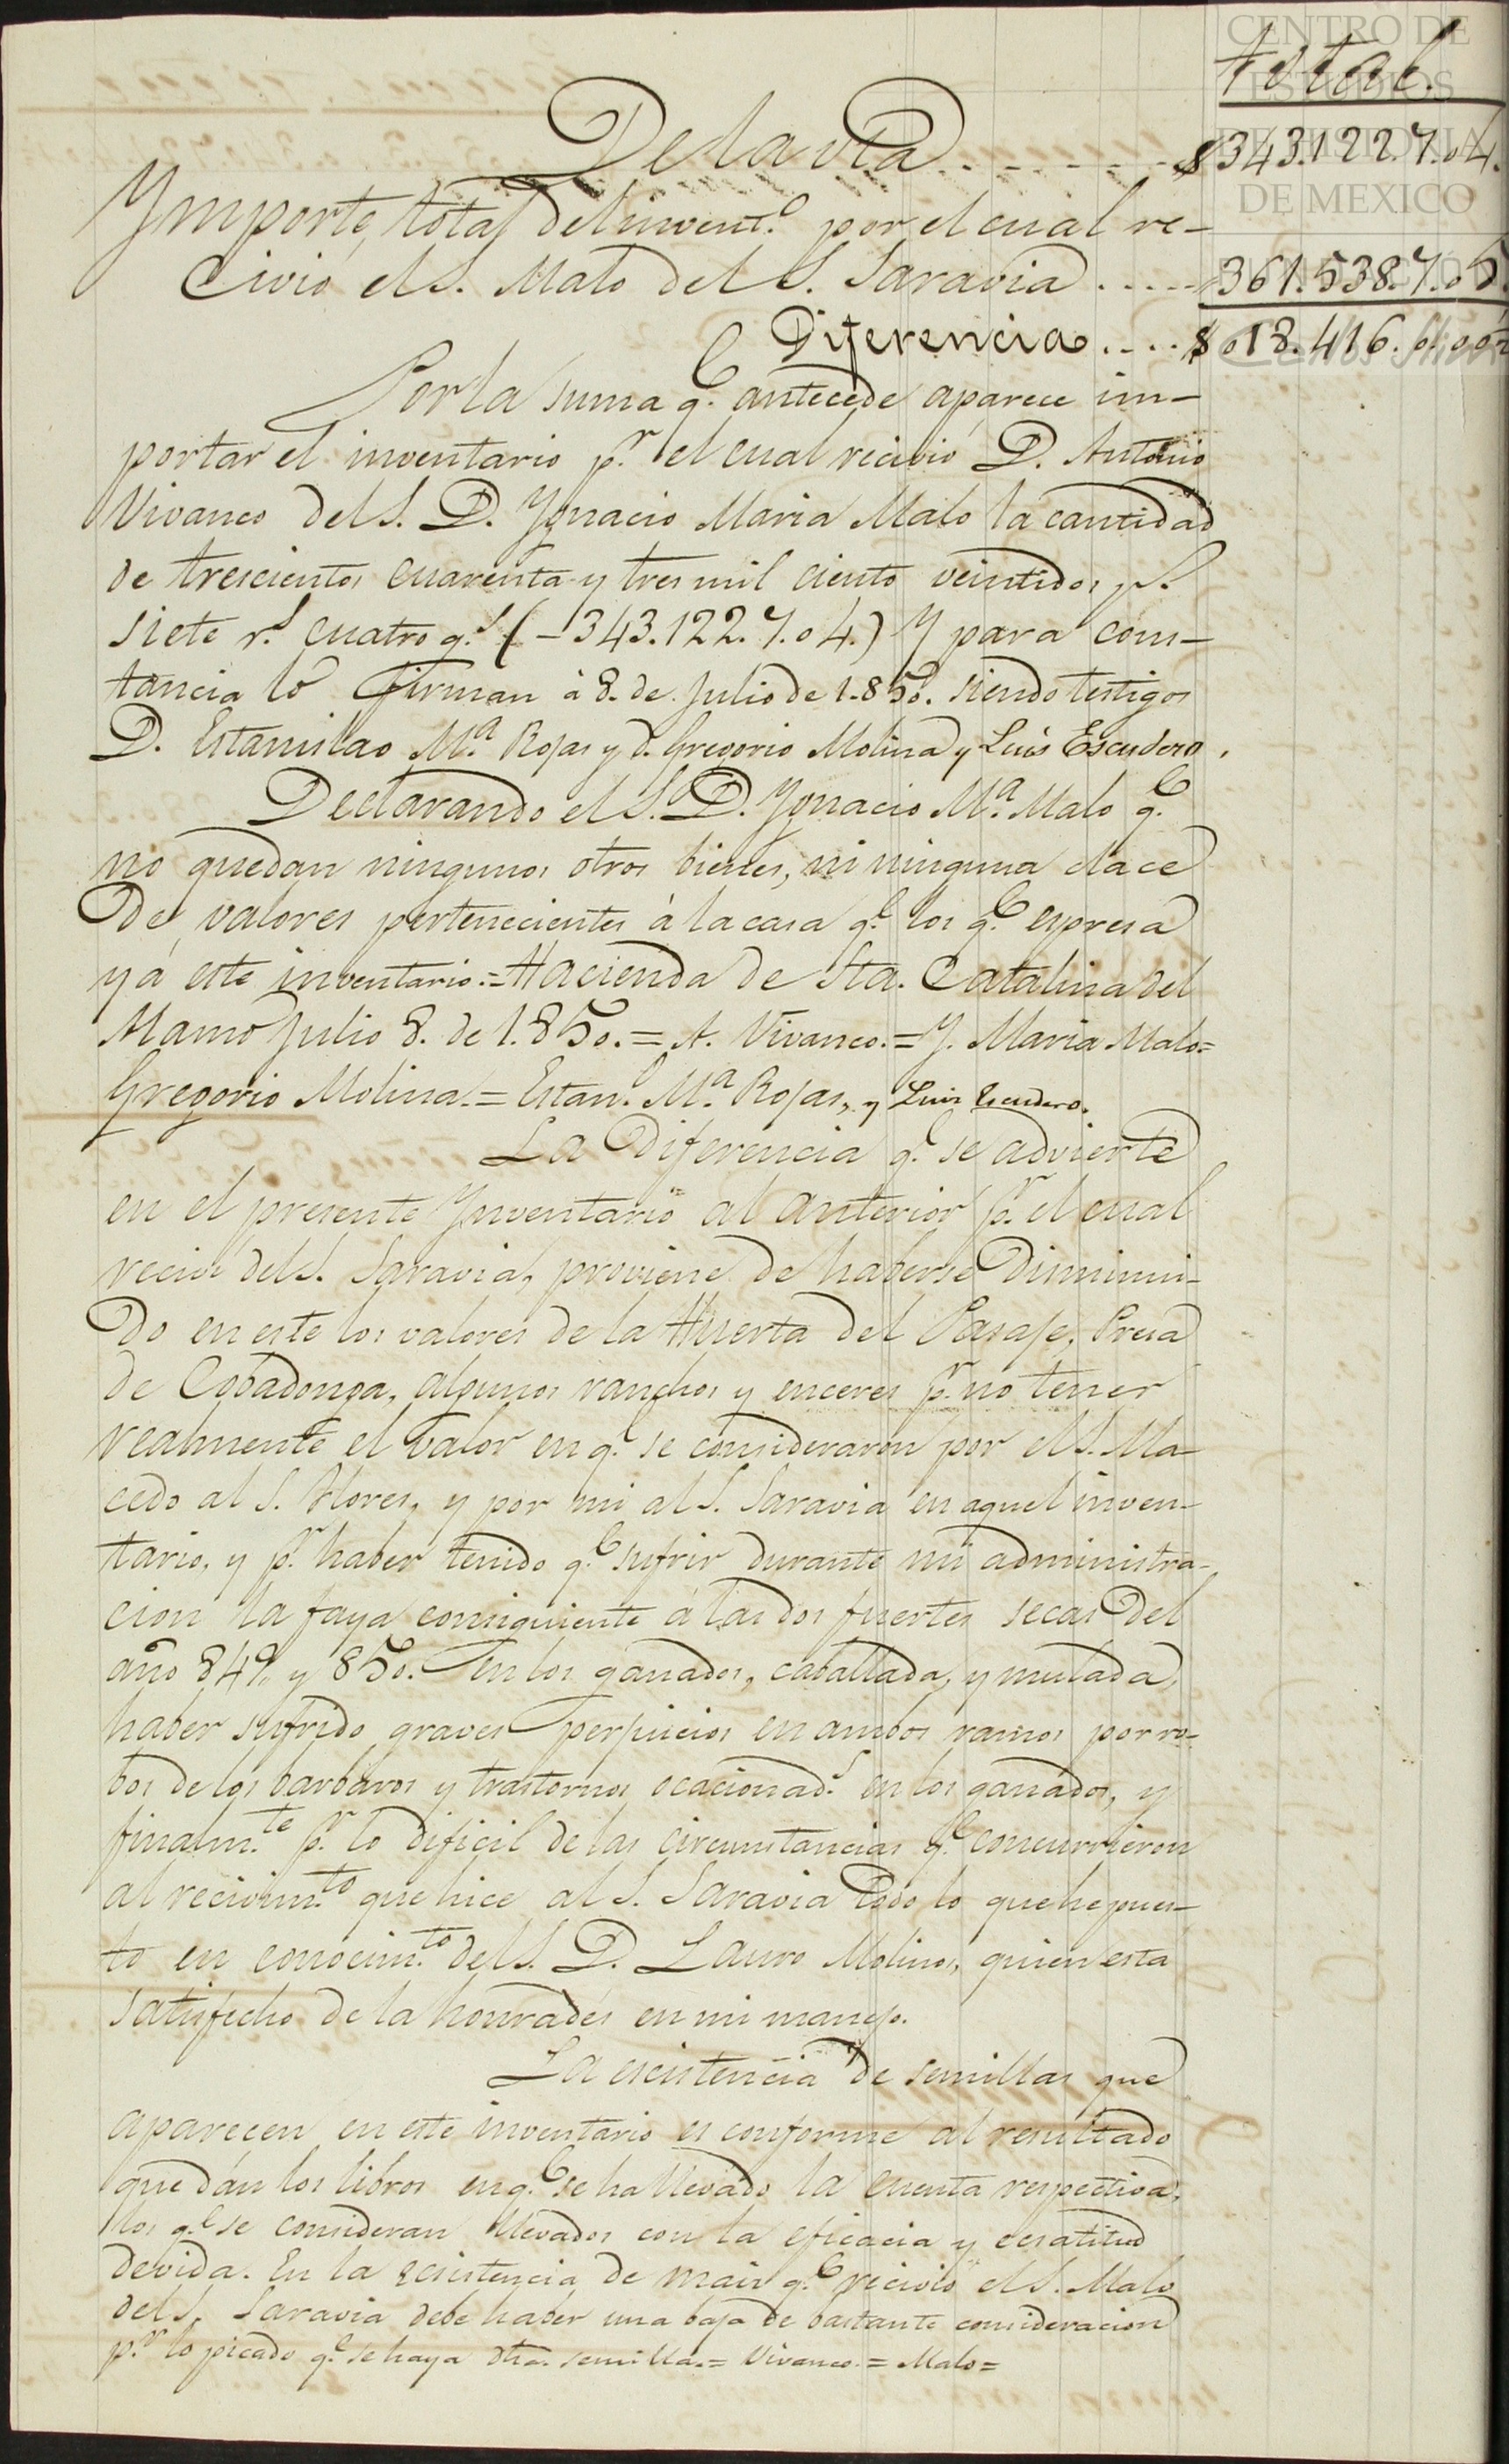 CENTRO DE
ESTUDIOS
DE HISTORIA
DE MEXICO
Total.
De la vta. - - - - - - $343.122.7.04.
Ymporte total del invent.o por el cual re-
civió el S. Malo del S. Saravia . . . . - 361.538.7.05.
Diferencia . . . . $018.416.
Por la suma q.e antecede aparece im-
portar el inventario p.r el cual recivió D. Antonio
Vivanco del S. D. Ygnacio Maria Malo la cantidad
de trescientos cuarenta y tres mil ciento veintidos p.s
siete r.s cuatro g.s (-343.122.7.04.) Y para cons-
tancia lo firman à 8. de Julio de 1.850. siendo testigos
D. Estanislao M.a Rojas y D. Gregorio Molina y Luis Escudero.
Declarando el S. D. Ygnacio M.a Malo q.e
no quedan ningunos otros bienes, ni ninguna clace
de valores pertenecientes à la casa q.e los q.e espresa
yá este inventario.= Hacienda de Sta. Catalina del
Alamo Julio 8. de 1.850.= A. Vivanco.= Y. Maria Malo=
Gregorio Molina.= Estan.o M.a Rojas, y Luis Escudero.
La diferencia q.e se advierte
en el presente Ynventario al anterior p.r el cual
recivi del S. Saravia, proviene de haberse diminui-
do en este los valores de la Huerta del Pasaje, Presa
de Cobadonga, algunos ranchos y enceres p.r no tener
realmente el valor en q.e se consideraron por el S. Ma-
cedo al S. Flores, y por mi al S. Saravia en aquel inven-
tario, y p.r haber tenido q.e sufrir durante mi administra-
cion la faya consiguiente á las dos fuertes secas del
año 849. y 850. en los ganados, caballada, y mulada,
haber sufrido graves perjuicios en ambos ramos por ro-
bos de los barbaros y trastornos ocacionad.s en los ganados, y
finalm.te p.r lo dificil de las circunstancias q.e concurrieron
al recivim.to que hice al S. Saravia todo lo que he pues-
to en conocim.to del S. D. Lauro Molinos, quien esta
satisfecho de la honradés en mi manejo.
La escistencia de semillas que
aparecen en este inventario es conforme al resultado
que dán los libros en q.e se ha llevado la cuenta respectiva,
los q.e se consideran llevados con la eficacia y ecsatitud
devida. En la ecsistencia de mais q.e recivió el S. Malo
del S. Saravia debe haber una baja de bastante consideracion
p.r lo picado q.e se haya dha. semilla.= Vivanco.= Malo=